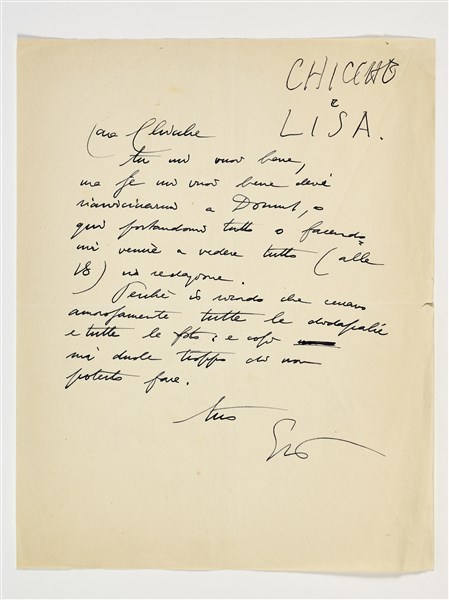 E
LISA.
Cara
tu mi vuoi bene,
ma se mi vuoi bene devi
riavvicinarmi a Domus, o
qui portandomi tutto o facendo
mi venire a vedere tutto (alle
18) in redazione.
Perchè io che curavo
amorosamente tutte le didascalie
e tutte le foto: e così
mi duole troppo di non
poterlo fare.
tuo
Gio